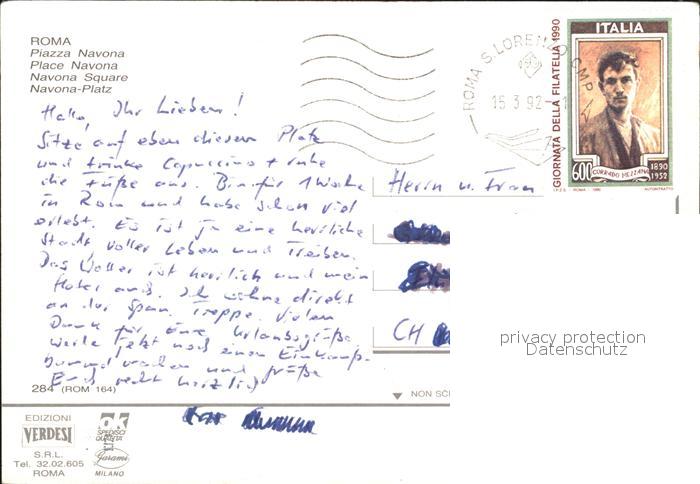 ROMA
Piazza Navona
Place Navona
Navona Square
Navona-Platz
Hallo, Ihr Lieben!
Sitze auf eben diesem Platz
und trinke Capuccino + ruhe
die Füße aus. Bin für 1 Woche
in Rom und habe schon viel
erlebt. Es ist ja eine herrliche
Stadt, voller Leben und Treiben.
Das Wetter ist herrlich und mein
Hotel auch. Ich wohne direkt
an der Span. Treppe. Vielen
Dank für Eure Urlaubsgrüße.
Werde jetzt noch einen Einkaufs-
bummel machen und grüße
Euch recht herzlich
284 (ROM 164)
EDIZIONI
VERDESI
S.R.L.
Tel. 32.02.605
ROMA
ok
SPEDISCI
QUALITÀ
Garami
MILANO
NON SC
Herrn u. Frau
CH
ROMA S. LORENZO CMP
15.3.92-1
GIORNATA DELLA FILATELIA 1990
ITALIA
600
CORRADO MEZZANA
1890
1952
I.P.Z.S. ROMA 1990
privacy protection
Datenschutz